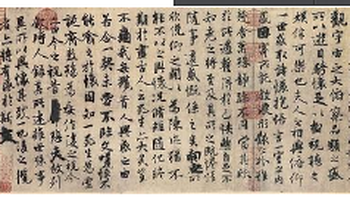 觀宇宙之大俯察品類之盛
所以遊目騁懷足以極視聽之
娛信可樂也夫人之相與俯仰
一世或取諸懷抱悟言一室之內
或因寄所託放浪形骸之外雖
趣舍萬殊靜躁不同當其欣
於所遇蹔得於己怏然自足不
知老之將至及其所之既惓情
隨事遷感慨係之矣向之所
欣俛仰之間以為陳迹猶不
能不以之興懷況脩短隨化終
期於盡古人云死生亦大矣豈
不痛哉每攬昔人興感之由
若合一契未嘗不臨文嗟悼不
能喻之於懷固知一死生為虛
誕齊彭殤為妄作後之視今
亦由今之視昔悲夫故列
敘時人錄其所述雖世殊事
異所以興懷其致一也後之攬
者亦將有感於斯文